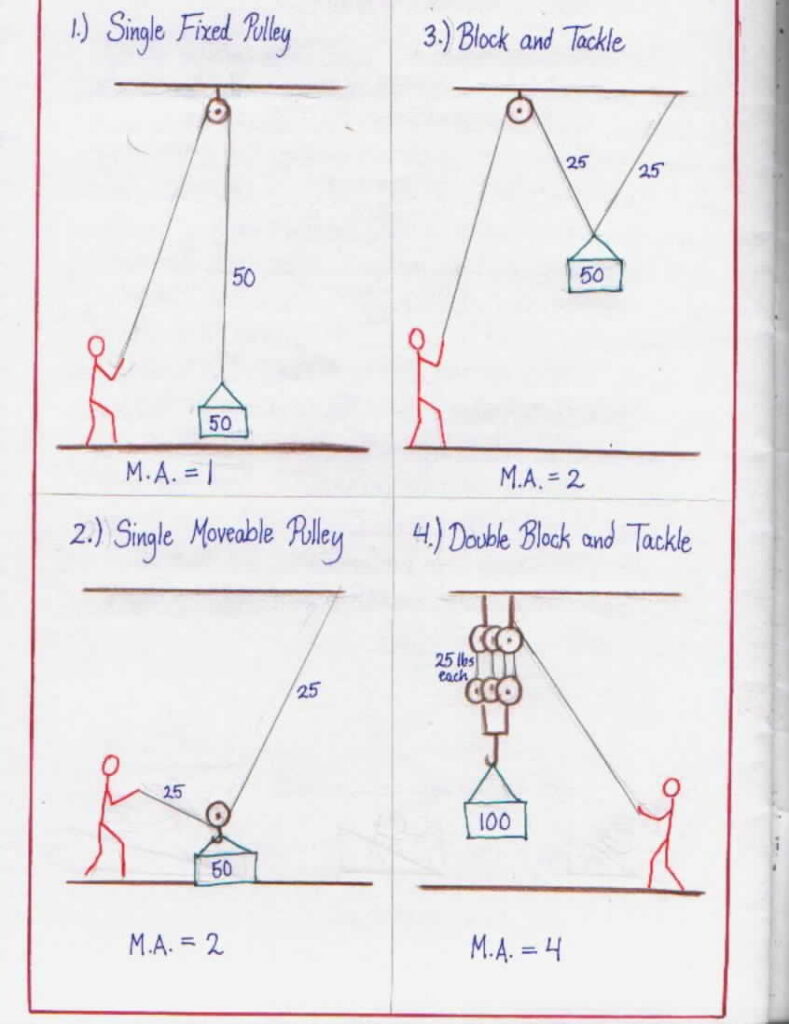 1.) Single Fixed Pulley
50
50
M.A. = 1
2.) Single Moveable Pulley
25
25
50
M.A. = 2
3.) Block and Tackle
25
25
50
M.A. = 2
4.) Double Block and Tackle
25 lbs
each
100
M.A. = 4